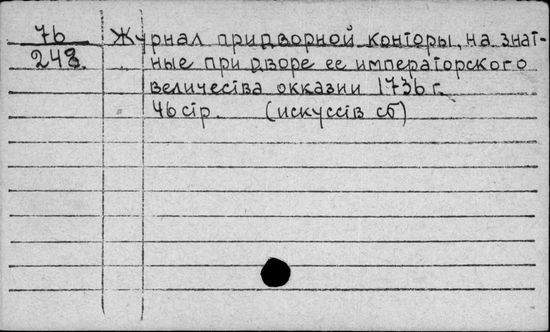 76 Журнал придворной конторы, на знат-
248. ные при дворе ее императорского
величества окказии 1736 г.
46 стр. (искусств сб)